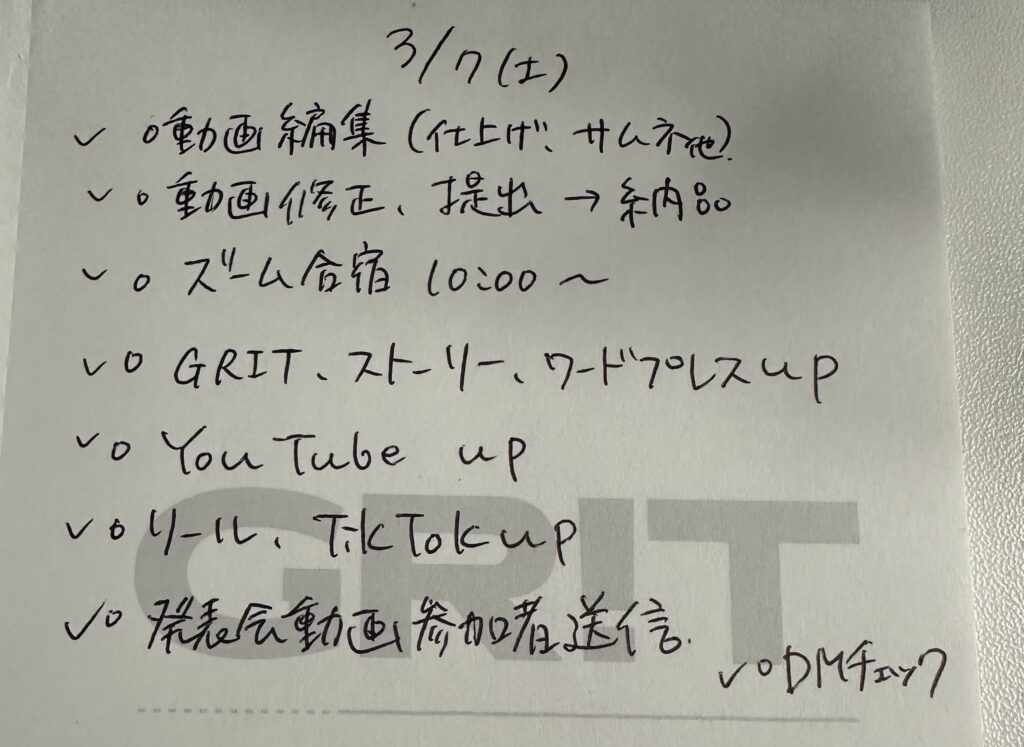 3/7(土)
✓ o動画編集(仕上げ、サムネ他)
✓ o 動画修正、提出→納品
✓ o ズーム合宿 10:00〜
✓ o GRIT、ストーリー、ワードプレスup
✓ o YouTube up
✓ o リール、TikTok up
✓ o 発表会動画参加者送信.
✓ o DMチェック
GRIT